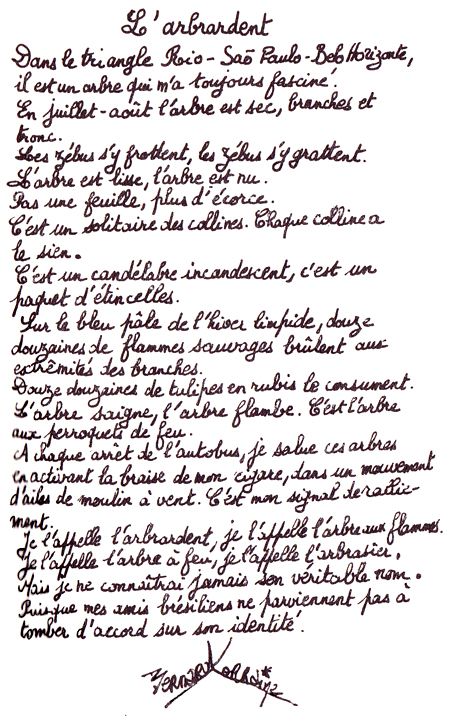 L'arbrardent
Dans le triangle Rio - Saõ Paulo - Belo Horizonte,
il est un arbre qui m'a toujours fasciné.
En juillet-août l'arbre est sec, branches et
tronc.
Les zébus s'y frottent, les zébus s'y grattent.
L'arbre est lisse, l'arbre est nu.
Pas une feuille, plus d'écorce.
C'est un solitaire des collines. Chaque colline a
le sien.
C'est un candélabre incandescent, c'est un
paquet d'étincelles.
Sur le bleu pâle de l'hiver limpide, douze
douzaines de flammes sauvages brûlent aux
extrêmités des branches.
Douze douzaines de tulipes en rubis le consument.
L'arbre saigne, l'arbre flambe. C'est l'arbre
aux perroquets de feu.
A chaque arrêt de l'autobus, je salue ces arbres
en activant la braise de mon cigare, dans un mouvement
d'ailes de moulin à vent. C'est mon signal de rallie-
ment.
Je l'appelle l'arbrardent, je l'appelle l'arbre aux flammes.
Je l'appelle l'arbre à feu, je l'appelle l'arbrasier.
Mais je ne connaîtrai jamais son véritable nom.
Puisque mes amis brésiliens ne parviennent pas à
tomber d'accord sur son identité.